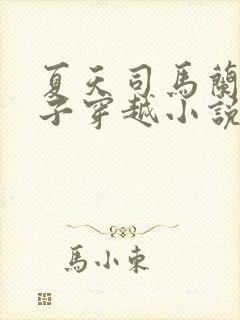 夏天司馬蘭
子穿越小說
馬小東